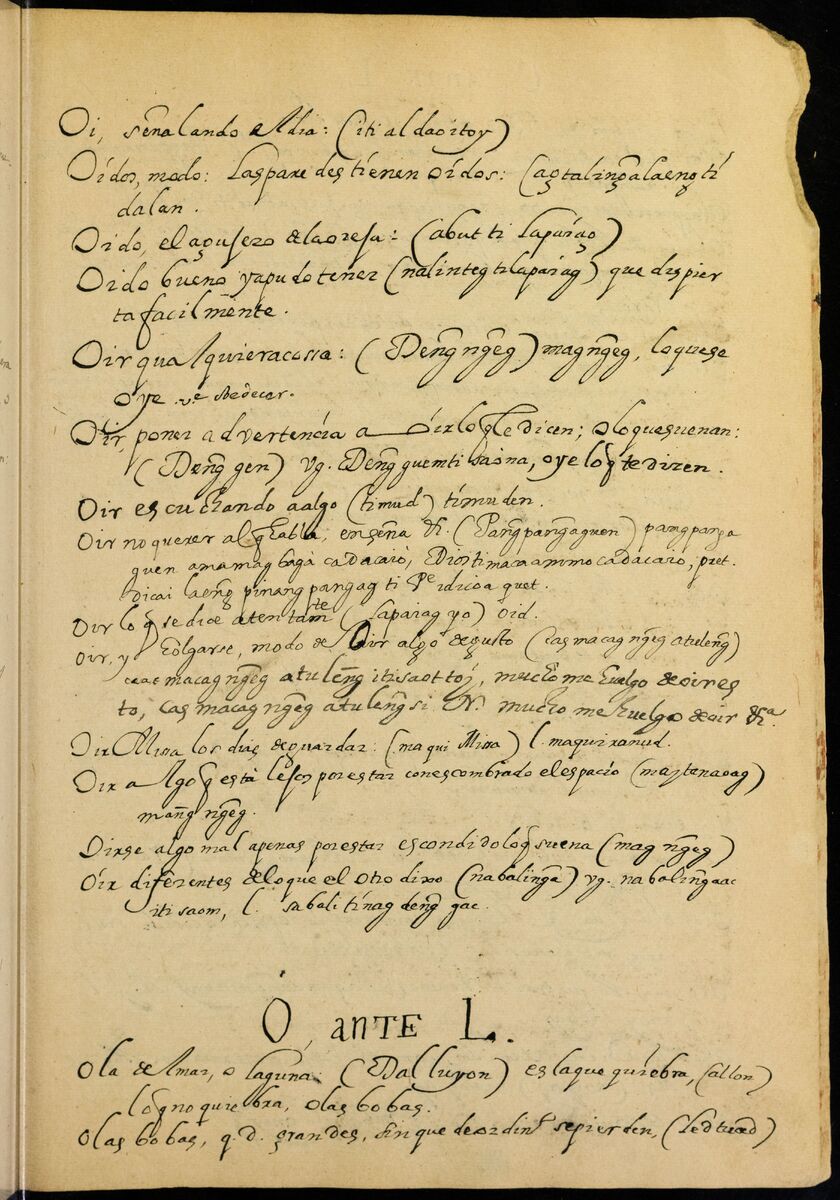 Oi, señalando el dia: (iti aldao itoy)
Oídos, modo: Las paredes tienen oídos: (aç taling̃a laeng ti
dalan.
Oido, el agujero de la oreja: (abut ti Lapáyag)
Oido bueno y apudo tener (nalinteg ti lapáyag) que despier
ta facilmẽnte.
Oir qualquiera cossa: (Deng̃ ng̃eg) mag ng̃eg, lo que se
oye. vᵉ obedecer.
Oir, poner advertencia a oir lo q̃ le dicen; o lo que suenan:
(Deng̃ gen) Vg. Deng̃ guem ti saona, oye lo q̃ te dizen.
Oir escuchando a algo (timud) timuden.
Oir no querer al q̃ habla, enseña &. (Pang̃pang̃aguen) pang̃pang̃a
guen ama mag bagà cadacaiò, Dios ti
dicai laeng̃ pinang̃pang̃ag ti Pᵉ
Oir lo q̃ se dice atentamᵗᵉ (lapaiag yo) oid.
Oir, y holgarse, modo de oir algo de gusto (cas macag ng̃eg atuleng̃)
macag ng̃eg atuleng̃ iti sao ttoy, mucho me huelgo de oir es
to, cas macag ng̃eg atuleng̃ si N. mucho me huelgo de oir &ª.
Oir Missa los dias de guardar: (maqui Missa) l. maquiranud.
Oir algo q̃ està lejos por estar con escombrado el espacio (maytenag)
mang̃ ng̃eg.
Oirse algo mal apenas por estar escondido lo q̃ suena (mag ng̃eg)
Oír diferentes de lo que el otro dixo (nabaling̃a) vg. nabaling̃aac
iti saom, l. sabali tinagdeng̃ gac.
O, ANTE L.
Ola de la mar, o laguna: (Dalluyon) es la que quiebra, (allon)
lo q̃ no quiebra, olas bobas.
Olas bobas, q. d. grandes, sin que de ordinº se pierden,